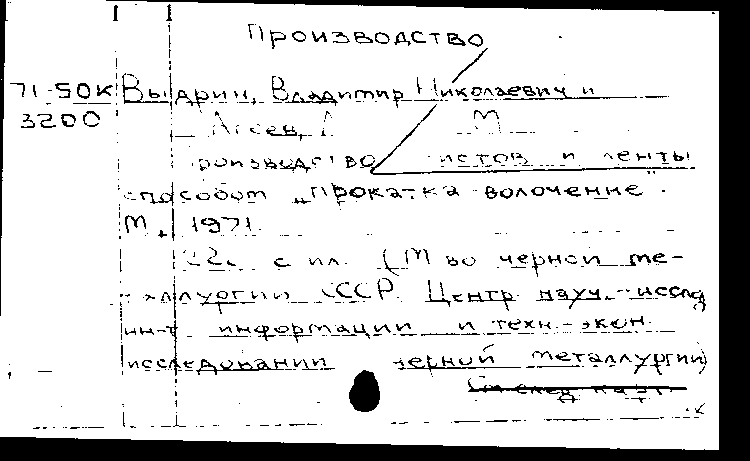 Производство
71-50К Выдрин, Владимир Николаевич и
3200 Агеев, Л М
Производство листов и ленты
способом „прокатка-волочение".
М., 1971.
22 с. ил. (М-во черной ме-
таллургии СССР. Центр. науч.-исслед
ин-т информации и техн.-экон.
исследований черной металлургии)
См след карт.